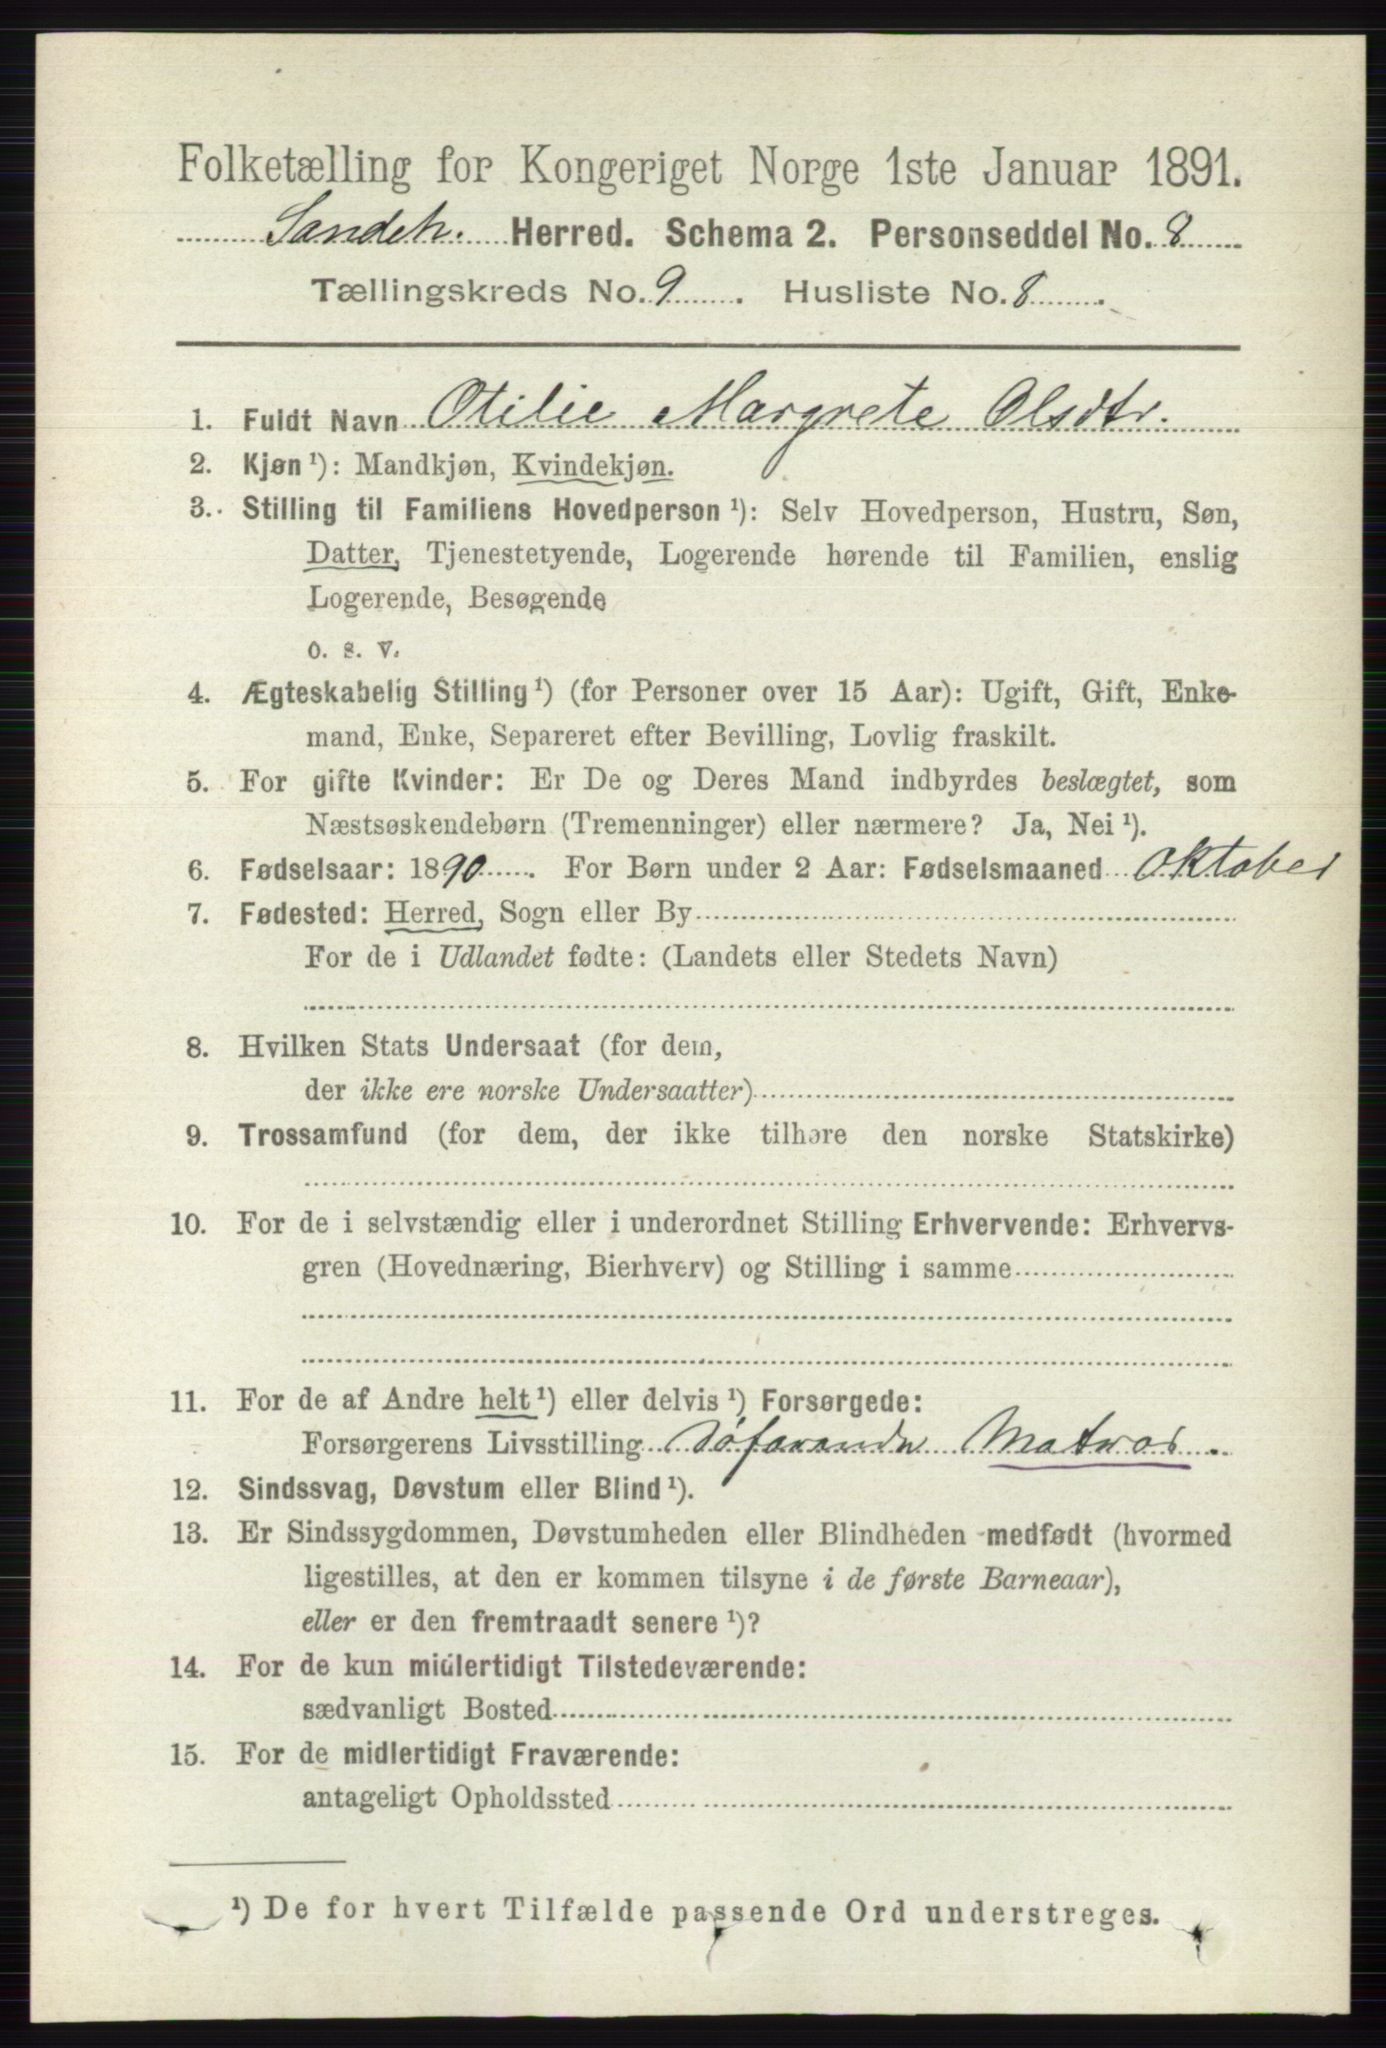 Folketælling for Kongeriget Norge 1ste Januar 1891.
Sandeh. Herred. Schema 2. Personseddel No. 8
Tællingskreds No. 9. Husliste No. 8.
1. Fuldt Navn Otilie Margrete Olsdtr.
2. Kjøn ¹): Mandkjøn, Kvindekjøn.
3. Stilling til Familiens Hovedperson ¹): Selv Hovedperson, Hustru, Søn,
Datter, Tjenestetyende, Logerende hørende til Familien, enslig
Logerende, Besøgende
o. s. v.
4. Ægteskabelig Stilling ¹) (for Personer over 15 Aar): Ugift, Gift, Enke-
mand, Enke, Separeret efter Bevilling, Lovlig fraskilt.
5. For gifte Kvinder: Er De og Deres Mand indbyrdes beslægtet, som
Næstsøskendebørn (Tremenninger) eller nærmere? Ja, Nei ¹).
6. Fødselsaar: 1890. For Børn under 2 Aar: Fødselsmaaned Oktober
7. Fødested: Herred, Sogn eller By
For de i Udlandet fødte: (Landets eller Stedets Navn)
8. Hvilken Stats Undersaat (for dem,
der ikke ere norske Undersaatter)
9. Trossamfund (for dem, der ikke tilhøre den norske Statskirke)
10. For de i selvstændig eller i underordnet Stilling Erhvervende: Erhvervs-
gren (Hovednæring, Bierhverv) og Stilling i samme
11. For de af Andre helt ¹) eller delvis ¹) Forsørgede:
Forsørgerens Livsstilling Søfarende Matros.
12. Sindssvag, Døvstum eller Blind ¹).
13. Er Sindssygdommen, Døvstumheden eller Blindheden medfødt (hvormed
ligestilles, at den er kommen tilsyne i de første Barneaar),
eller er den fremtraadt senere ¹)?
14. For de kun midlertidigt Tilstedeværende:
sædvanligt Bosted
15. For de midlertidigt Fraværende:
antageligt Opholdssted
¹) De for hvert Tilfælde passende Ord understreges.